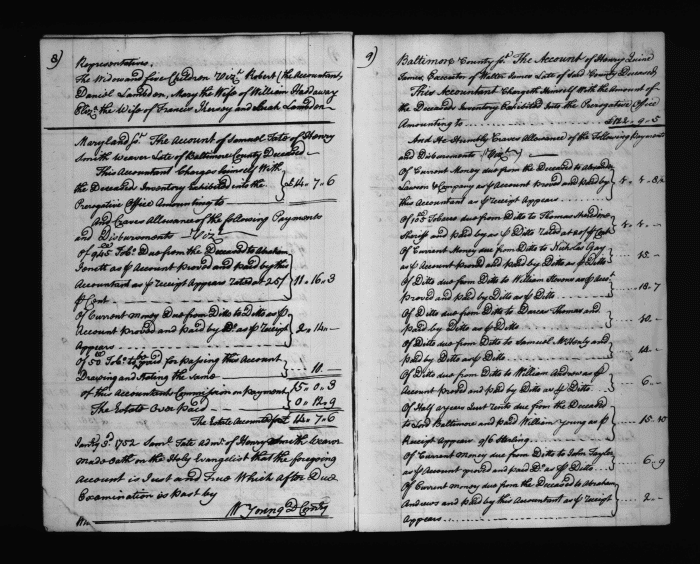 8)
Representatives.
The Widow and five Children Vizt. Robert (the Accountant,
Daniel Landdon, Mary the Wife of William Hadaway
the Wife of Francis Kersey and Sarah Landdon
Maryland ss. The Account of Samuel Tate of Henry
Smith Weaver Late of Baltimore County Deceased
This Accountant Charges himself With
the Deceaseds Inventory Exhibited into the
Prerogative Office Amounting to £14 " 7 " 6
And Craves Allowance of the following Payments
and Disbursements Vizt.
Of 945 Tobo. Due from the Deceased to
as p Account Proved and paid by this
Accountant as p receipt Appears rated at 25/ 11 " 16 " 3
p Cent
Of Current Money Due from Ditto to Ditto as p
Account proved and paid by Do. as p receipt 2 " 14 " -
Appears
Of 50 Tobo. for passing this Account
Drawing and Stating the same 10 " -
of this Accountants Commission on Payment 15 " 0 " 3
The Estate Over Paid 0 " 12 " 9
The Estate Accounted for 14 " 7 " 6
Janry 3d. 1752 Saml. Tate Admr. of Henry Smith Weaver
made oath on the Holy Evangelist that the foregoing
Account is Just and True Which after Due
Examination is Past by
W Young D Comry
9)
Baltimore County ss. The Account of Henry
James, Executor of Walter James Late of said County Deceased
This Accountant Chargeth himself With the Amount of
the Deceaseds Inventory Exhibited Into the Prerogative Office
Amounting to £122 " 9 " 5
And He Humbly Craves Allowance of the Following Payments
and Disbursements Vizt.
Of Current Money due from the Deceased to
Lawson & Company as p Account Proved and paid by
this Accountant as p receipt Appears
Of Tobacco due from Ditto to Thomas
Sheriff and paid by as p Ditto rated at
Of Current Money due from Ditto to Nicholas Gay
as p Account Proved and paid by Ditto as p Ditto 15 " -
Of Ditto due from Ditto to William Stevens as p
Proved and paid by Ditto as p Ditto 18 " 7
Of Ditto due from Ditto to Darcas Thomas and
paid by Ditto as p Ditto 10 " -
Of Ditto due from Ditto to Samuel and
paid by Ditto as p Ditto 14 " -
Of Ditto due from Ditto to William Andrew as p
Account Proved and paid by Ditto as p Ditto 6 " -
Of Half a years Quit rents due from the Deceased
to Lord Baltimore and paid William Young as p 15 " 10
Receipt Appears Sterling
Of Current Money due from Ditto to John Taylor
as p Account proved and paid Do. as p Ditto 6 " 9
Of Current Money due from the Deceased to Abraham
Andrews and paid by this Accountant as p receipt 2 " -
Appears